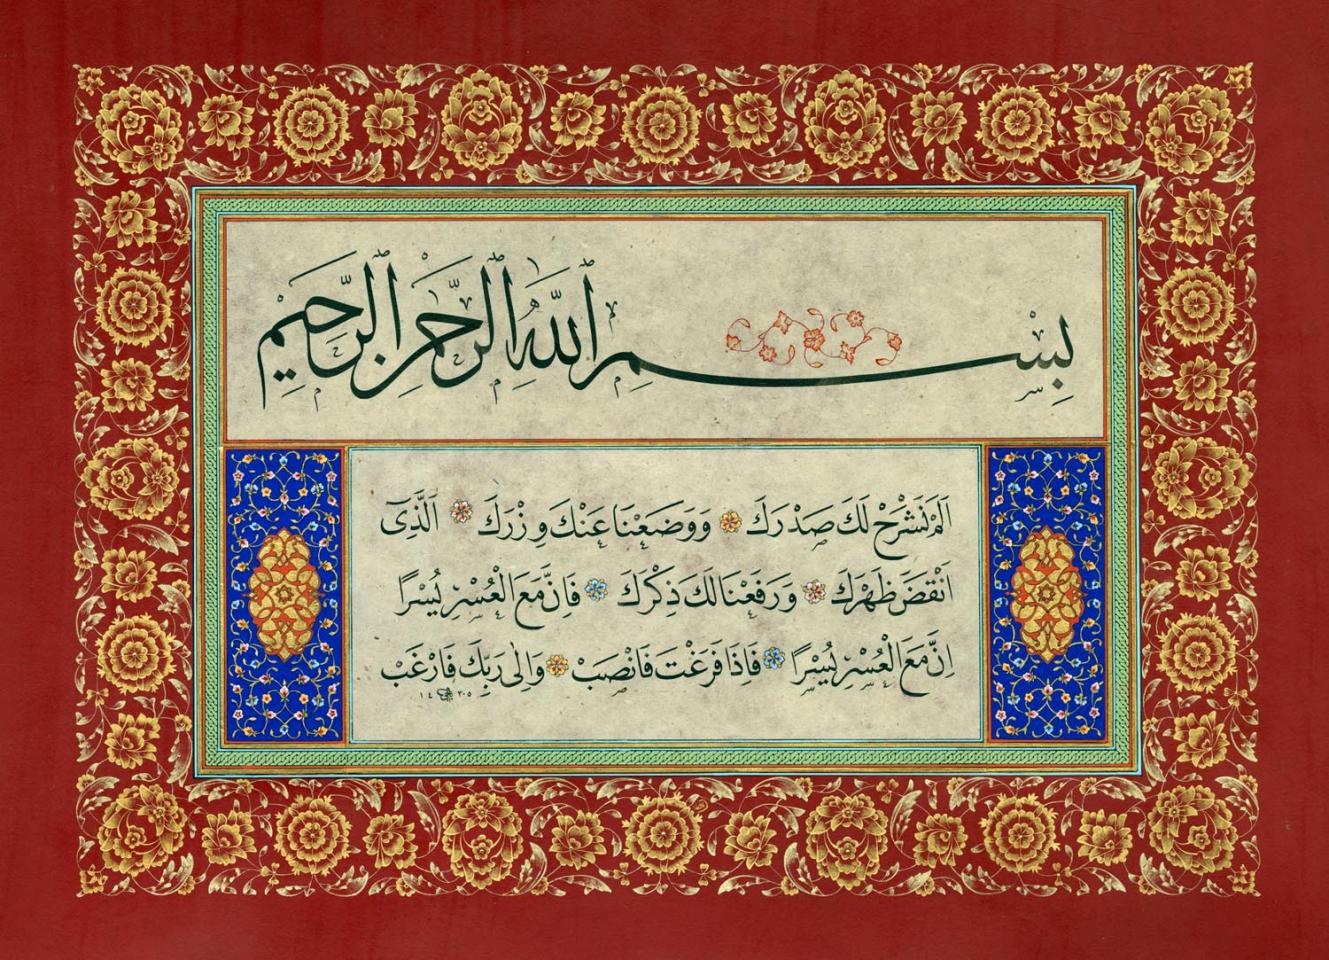 بِسْمِ اللَّهِ الرَّحْمٰنِ الرَّحِيمِ
اَلَمْ نَشْرَحْ لَكَ صَدْرَكَ وَوَضَعْنَا عَنْكَ وِزْرَكَ اَلَّذٖى
اَنْقَضَ ظَهْرَكَ وَرَفَعْنَا لَكَ ذِكْرَكَ فَاِنَّ مَعَ الْعُسْرِ يُسْرًا
اِنَّ مَعَ الْعُسْرِ يُسْرًا فَاِذَا فَرَغْتَ فَانْصَبْ وَاِلٰى رَبِّكَ فَارْغَبْ